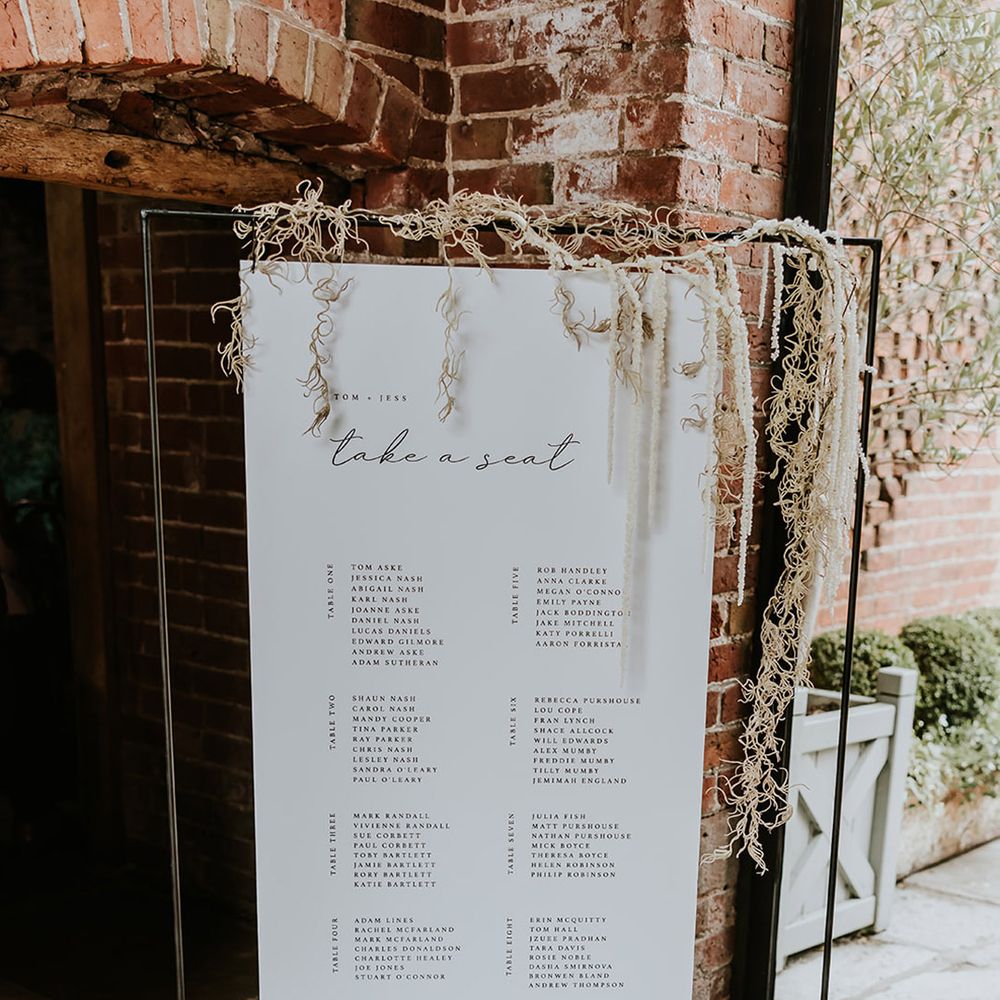 TOM + JESS
take a seat
TABLE ONE
TOM ASKE
JESSICA NASH
ABIGAIL NASH
KARL NASH
JOANNE ASKE
DANIEL NASH
LUCAS DANIELS
EDWARD GILMORE
ANDREW ASKE
ADAM SUTHERAN
TABLE TWO
SHAUN NASH
CAROL NASH
MANDY COOPER
TINA PARKER
RAY PARKER
CHRIS NASH
LESLEY NASH
SANDRA O'LEARY
PAUL O'LEARY
TABLE THREE
MARK RANDALL
VIVIENNE RANDALL
SUE CORBETT
PAUL CORBETT
TOBY BARTLETT
JAMIE BARTLETT
RORY BARTLETT
KATIE BARTLETT
TABLE FOUR
ADAM LINES
RACHEL MCFARLAND
MARK MCFARLAND
CHARLES DONALDSON
CHARLOTTE HEALEY
JOE JONES
STUART O'CONNOR
TABLE FIVE
ROB HANDLEY
ANNA CLARKE
MEGAN O'CONNO
EMILY PAYNE
JACK BODDINGTO
JAKE MITCHELL
KATY PORRELLI
AARON FORRISTA
TABLE SIX
REBECCA PURSHOUSE
LOU COPE
FRAN LYNCH
SHACE ALLCOCK
WILL EDWARDS
ALEX MUMBY
FREDDIE MUMBY
TILLY MUMBY
JEMIMAH ENGLAND
TABLE SEVEN
JULIA FISH
MATT PURSHOUSE
NATHAN PURSHOUSE
MICK BOYCE
THERESA BOYCE
HELEN ROBINSON
PHILIP ROBINSON
TABLE EIGHT
ERIN MCQUITTY
TOM HALL
JZUEE PRADHAN
TARA DAVIS
ROSIE NOBLE
DASHA SMIRNOVA
BRONWEN BLAND
ANDREW THOMPSON